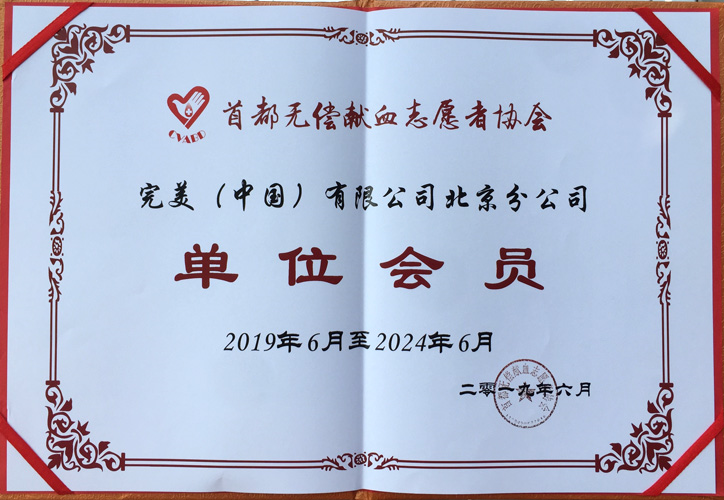 首都无偿献血志愿者协会
CVABD
完美（中国）有限公司北京分公司
单位会员
2019年6月至2024年6月
二零一九年六月
首都无偿献血志愿者协会